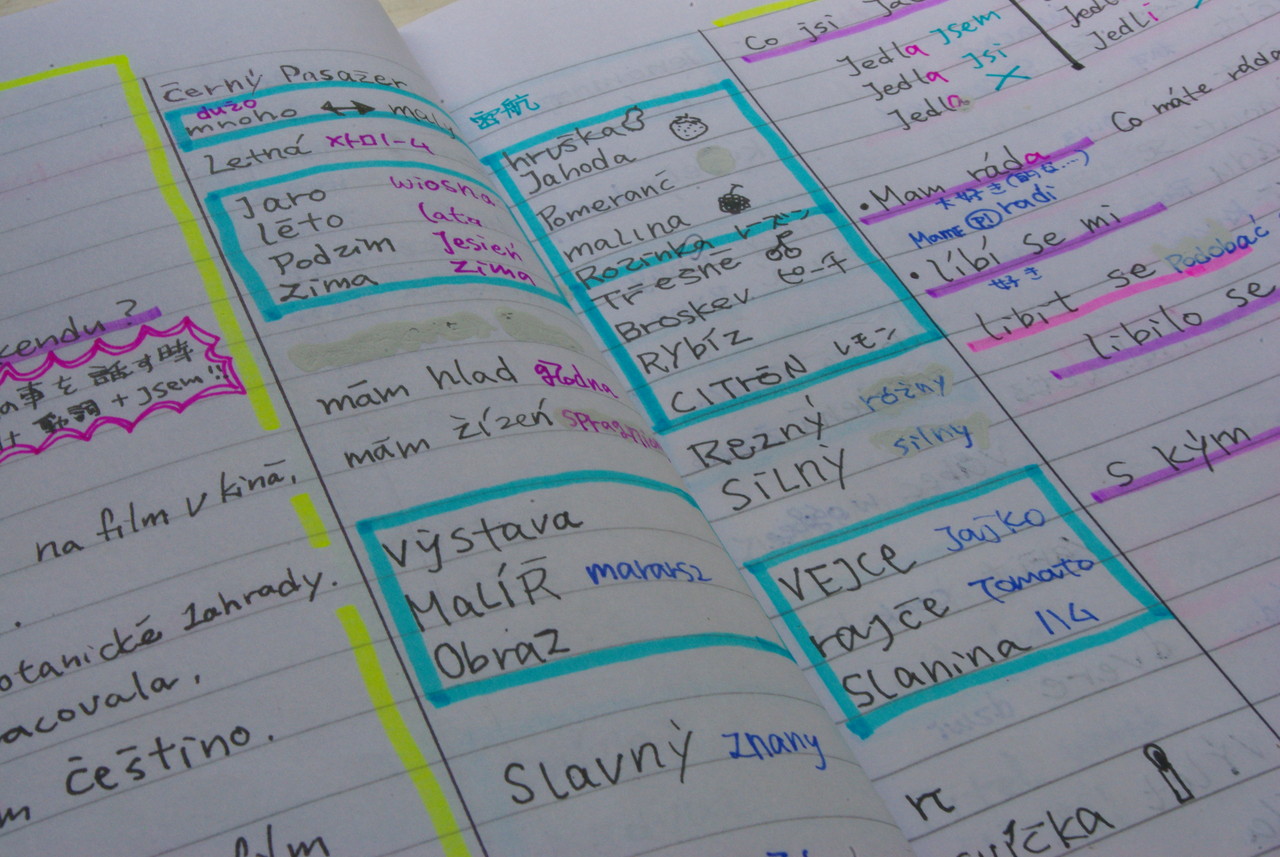 kendu?
事を話す時
動詞 + Jsem!!
na film v kinā,
otanické zahrady.
acovala.
m češtino.
film
černý Pasažer
dužo
mnoho ↔
Letná メトロ1-4
Jaro wiosna
lēto lata
Podzim Jesień
zima zima
mám hlad głodna
mám žízeń
výstava
MaLÍŘ mararsz
Obraz
Slavný znany
密航
hruška
Jahoda
Pomeranč
malina
Rozinka レズン
Třešně
Broskev ピーチ
RYbíz
CITRōN レモン
Rezný rożny
SiLNÝ silny
VEJCE Jajko
rajče Tomato
Slanina
Co jsi
Jedla Jsem
Jedla Jsi
Jedla
Jedli
Co máte ráda
• Mam ráda
大好き
Mame radi
• líbí se mi
好き
libit se Podobać
libilo se
s kým